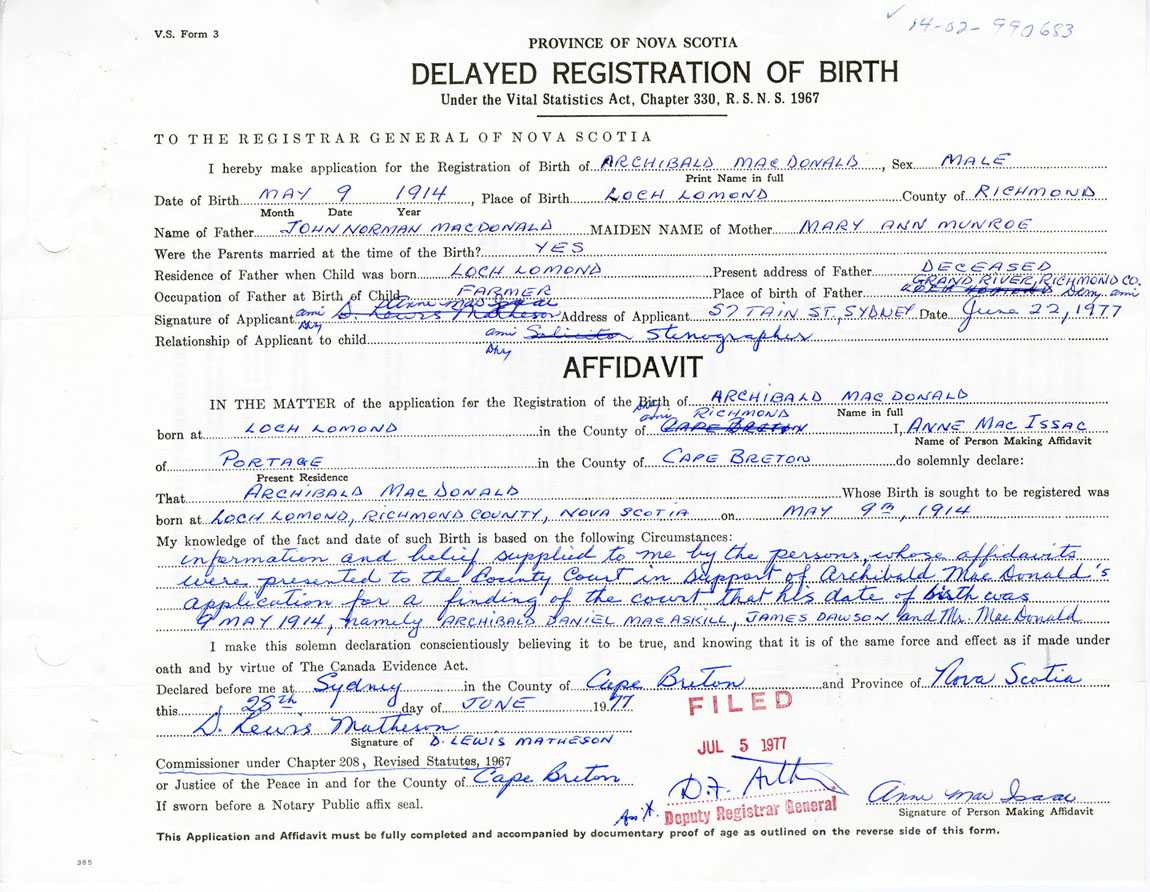 V.S. Form 3
14-02-990683
PROVINCE OF NOVA SCOTIA
DELAYED REGISTRATION OF BIRTH
Under the Vital Statistics Act, Chapter 330, R.S.N.S. 1967
TO THE REGISTRAR GENERAL OF NOVA SCOTIA
I hereby make application for the Registration of Birth of ARCHIBALD MACDONALD, Sex MALE
Print Name in full
Date of Birth MAY 9 1914, Place of Birth LOCH LOMOND County of RICHMOND
Month Date Year
Name of Father JOHN NORMAN MACDONALD MAIDEN NAME of Mother MARY ANN MUNROE
Were the Parents married at the time of the Birth? YES
Residence of Father when Child was born LOCH LOMOND Present address of Father DECEASED
GRAND RIVER, RICHMOND CO.
Occupation of Father at Birth of Child FARMER Place of birth of Father LOCH LOMOND ami
Anne Mac Isaac
Signature of Applicant ami D. Lewis Matheson Address of Applicant 57 TAIN ST., SYDNEY Date June 22, 1977
Relationship of Applicant to child ami Solicitor Stenographer
AFFIDAVIT
IN THE MATTER of the application for the Registration of the Birth of ARCHIBALD MACDONALD
ami RICHMOND Name in full
born at LOCH LOMOND in the County of CAPE BRETON I, ANNE MAC ISSAC
Name of Person Making Affidavit
of PORTAGE in the County of CAPE BRETON do solemnly declare:
Present Residence
That ARCHIBALD MACDONALD Whose Birth is sought to be registered was
born at LOCH LOMOND, RICHMOND COUNTY, NOVA SCOTIA on MAY 9TH, 1914
My knowledge of the fact and date of such Birth is based on the following Circumstances:
information and belief supplied to me by the persons, whose affidavits
were presented to the County Court in support of Archibald MacDonald's
application for a finding of the court that his date of birth was
9 MAY 1914, namely ARCHIBALD DANIEL MACASKILL, JAMES DAWSON and Mr. MacDonald
I make this solemn declaration conscientiously believing it to be true, and knowing that it is of the same force and effect as if made under
oath and by virtue of The Canada Evidence Act.
Declared before me at Sydney in the County of Cape Breton and Province of Nova Scotia
this 28th day of JUNE 1977
FILED
D. Lewis Matheson
Signature of D. LEWIS MATHESON
JUL 5 1977
Commissioner under Chapter 208, Revised Statutes, 1967
or Justice of the Peace in and for the County of Cape Breton
D.F. Arth
Anne Mac Isaac
If sworn before a Notary Public affix seal.
Ass't. Deputy Registrar General
Signature of Person Making Affidavit
This Application and Affidavit must be fully completed and accompanied by documentary proof of age as outlined on the reverse side of this form.
385